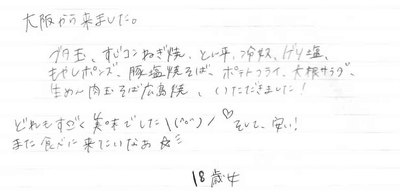 大阪から来ました。
ブタ玉、すじコンねぎ焼、とん平、冷奴、ゲソ塩、
もやしポンズ、豚塩焼そば、ポテトフライ、大根サラダ、
生めん肉玉そば広島焼、いただきました！
どれもすごく美味でした\(^o^)/♡そして、安い！
また食べに来たいなぁ☆彡
18歳女